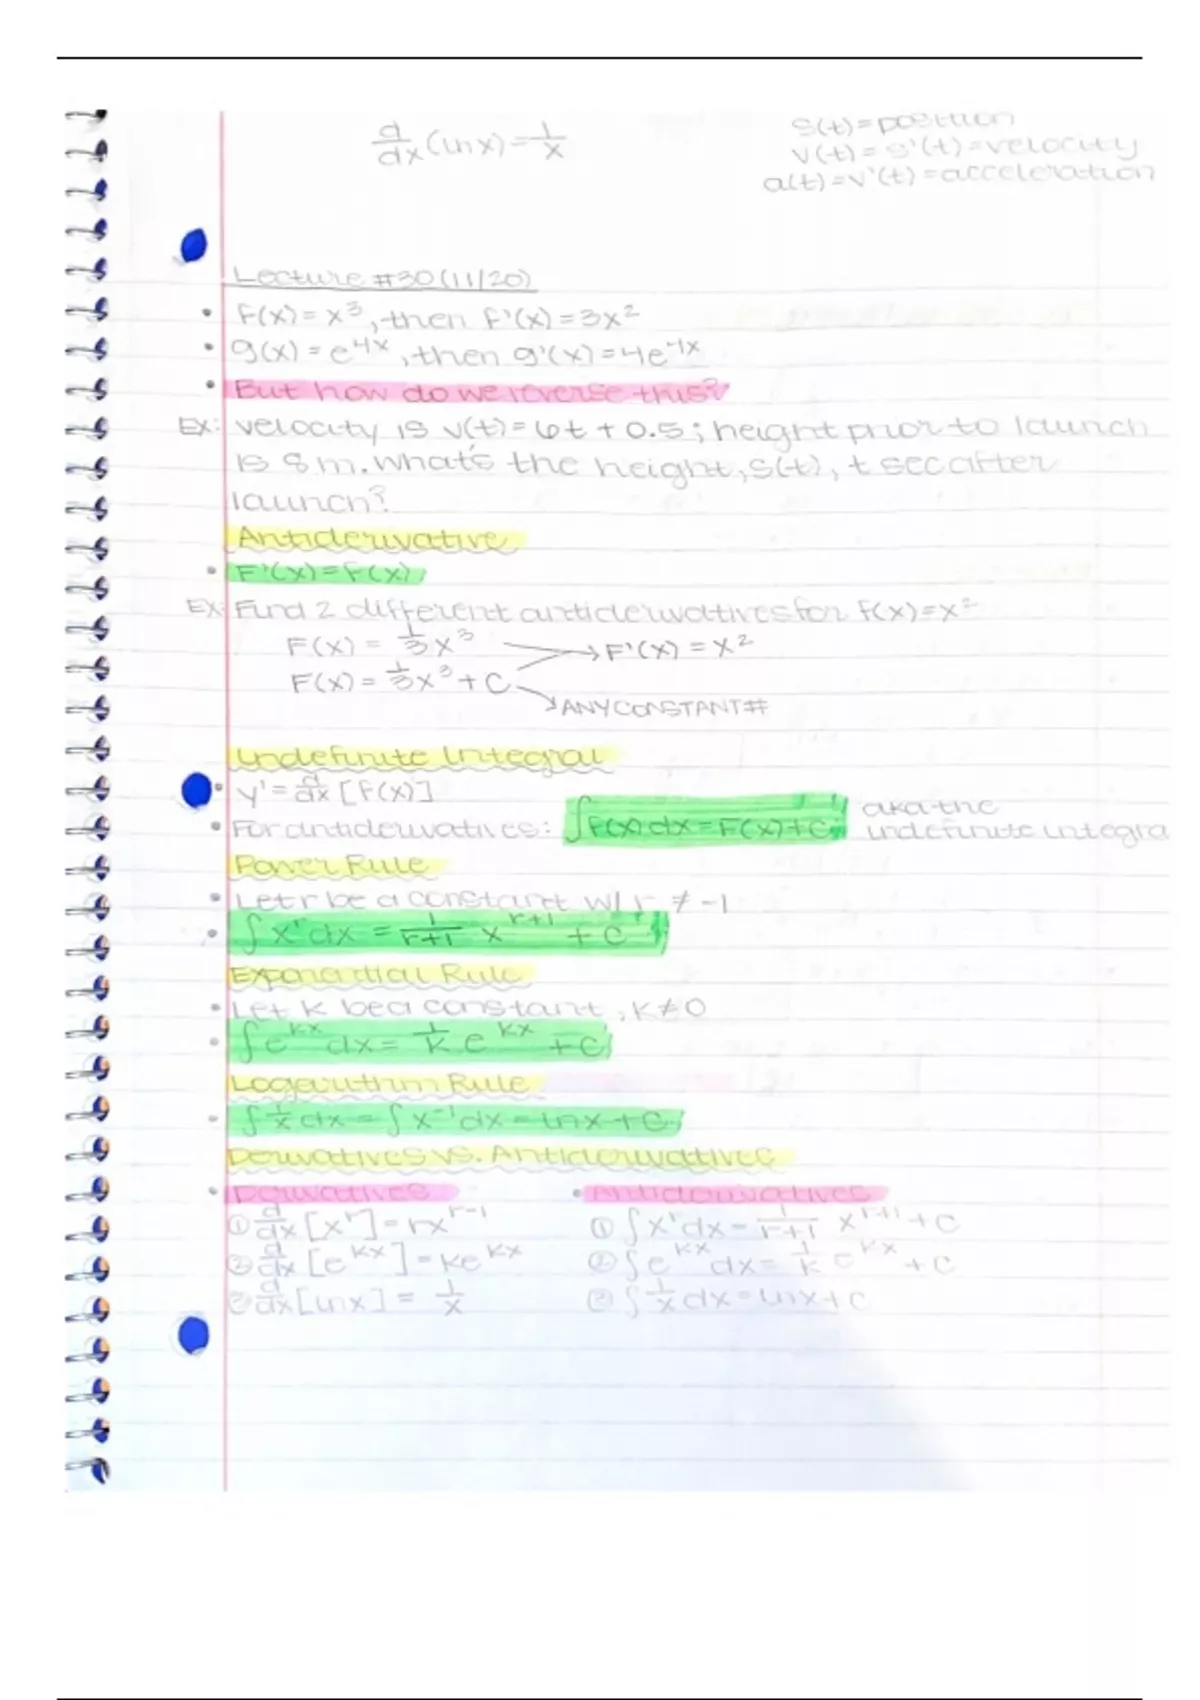 d/dx (lnx) = 1/x
s(t) = position
v(t) = s'(t) = velocity
a(t) = v'(t) = acceleration
Lecture #30 (11/20)
• f(x) = x³, then f'(x) = 3x²
• g(x) = e^4x, then g'(x) = 4e^4x
• But how do we reverse this?
Ex: velocity is v(t) = 6t + 0.5; height prior to launch
is 8m. what's the height, s(t), t sec after
launch?
Antiderivative
• F'(x) = f(x)
Ex: Find 2 different antiderivatives for f(x) = x²
F(x) = 1/3 x³ → F'(x) = x²
F(x) = 1/3 x³ + C
↘ ANY CONSTANT #
Indefinite Integral
• y' = d/dx [f(x)]
• For antiderivatives: ∫f(x)dx = F(x) + C; aka the
indefinite integra
Power Rule
• Let r be a constant w/ r ≠ -1
• ∫x^r dx = 1/(r+1) x^(r+1) + C
Exponential Rule
• Let k be a constant, k ≠ 0
• ∫e^kx dx = 1/k e^kx + C
Logarithm Rule
• ∫1/x dx = ∫x^-1 dx = lnx + C
Derivatives vs. Antiderivatives
• Derivatives • Antiderivatives
① d/dx [x^r] = rx^(r-1) ① ∫x^r dx = 1/(r+1) x^(r+1) + C
② d/dx [e^kx] = ke^kx ② ∫e^kx dx = 1/k e^kx + C
③ d/dx [lnx] = 1/x ③ ∫1/x dx = lnx + C